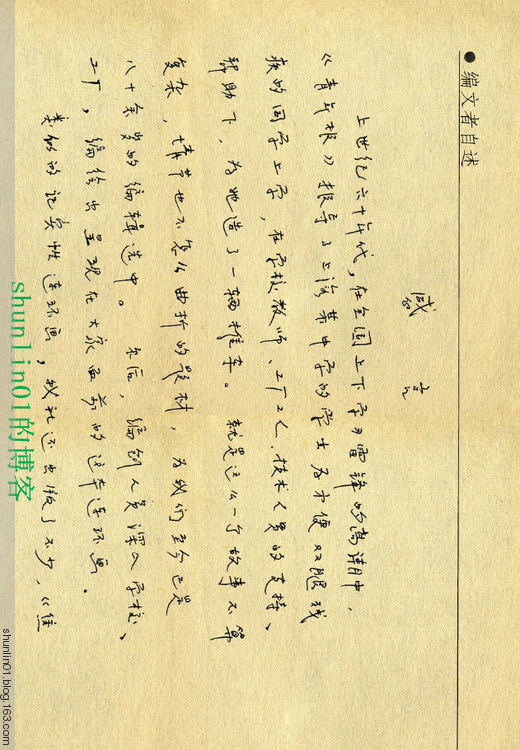 ●编文者自述
感言
上世纪六十年代,在全国上下学习雷锋的高潮中,
《青年报》报导了上海某中学的学生为方便双腿残
疾的同学上学,在学校教师、工厂工人、技术人员的支持、
帮助下,为她造了一辆推车。就是这么一个故事不算
复杂,情节也不怎么曲折的题材,为我们至今已是
八十余岁的编辑选中。尔后,编创人员深入学校、
工厂,编绘出呈现在大家面前的这本连环画。
类似的记实性连环画,我社还出版了不少,《焦
shunlin01的博客
shunlin01.blog.163.com